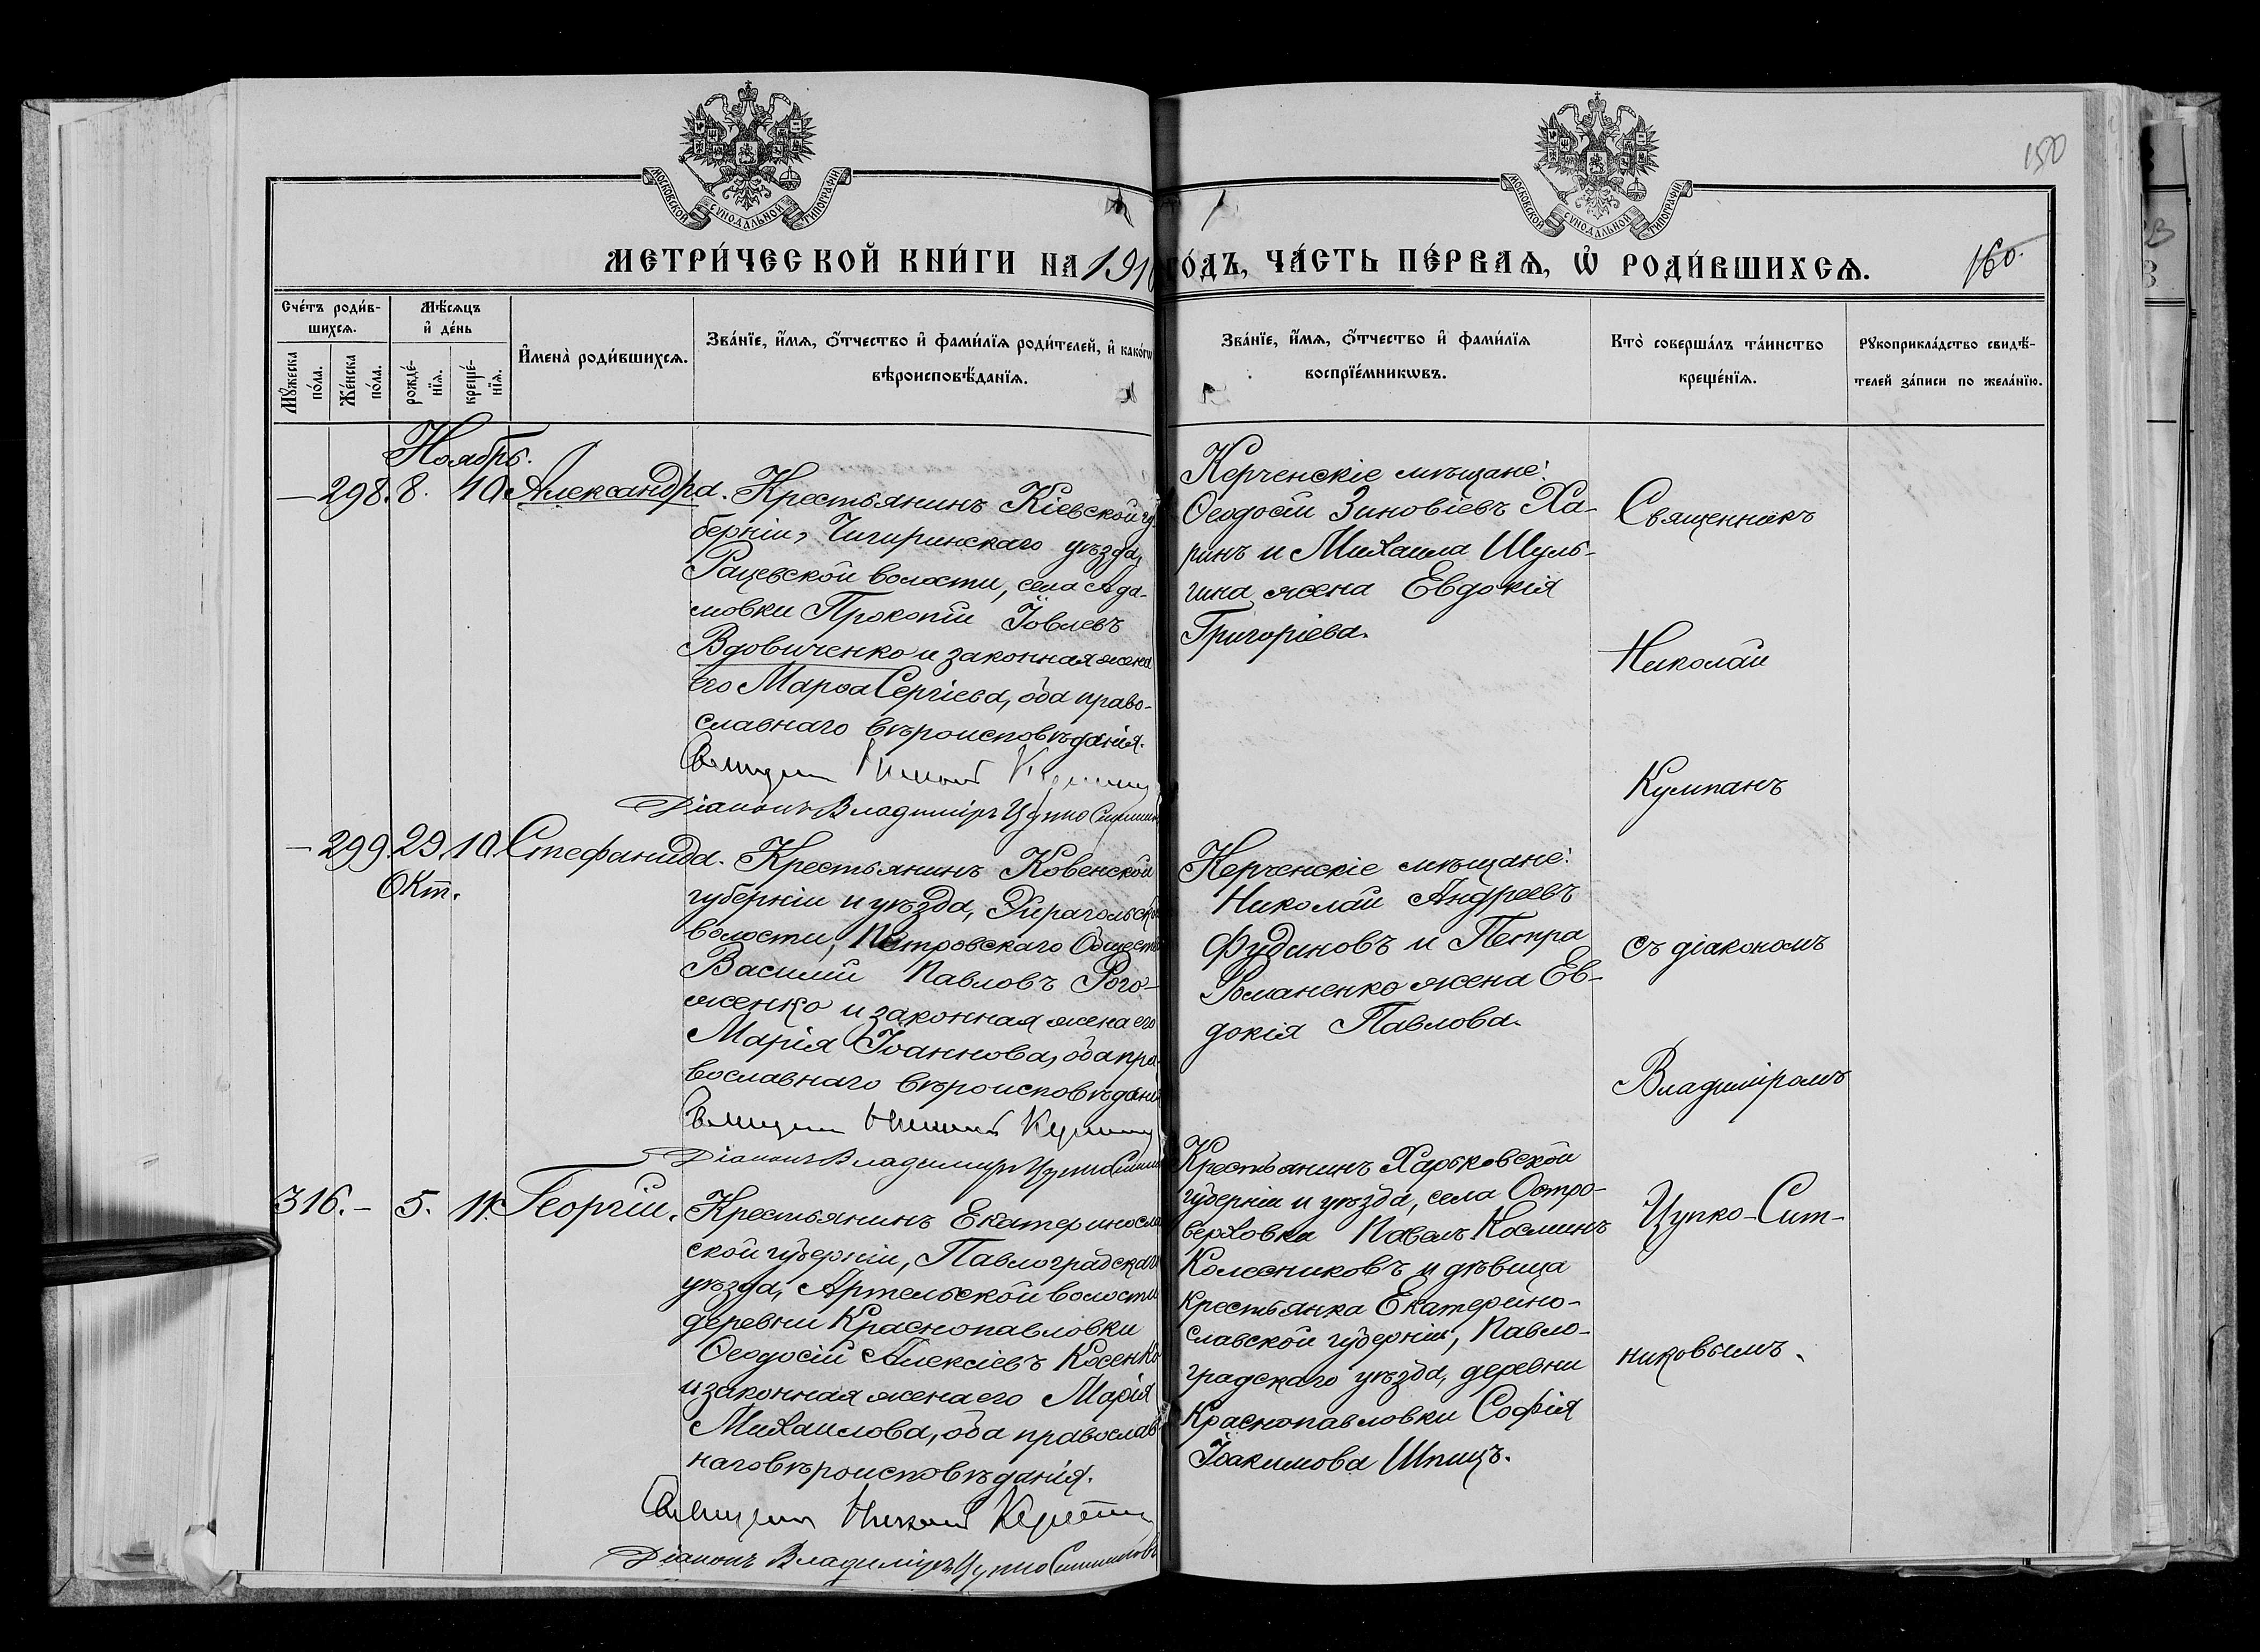 МОСКОВСКОЙ СѴНОДАЛЬНОЙ ТИПОГРАФІИ
МОСКОВСКОЙ СѴНОДАЛЬНОЙ ТИПОГРАФІИ
150
МЕТРИ́ЧЕСКОЙ КНИ́ГИ НА 191
го́дъ, ча́сть пе́рваѧ, ѡ҆ роди́вшихсѧ.
160.
Сче́тъ роди́в-
шихсѧ.
Мѣ́сѧцъ
и҆ де́нь
Мꙋ́жеска по́ла.
Же́нска по́ла.
рожде́-
нїѧ.
креще́-
нїѧ.
И҆мена̀ роди́вшихсѧ.
Зва́нїе, и҆́мѧ, ѻ҆́тчество и҆ фами́лїѧ роди́телей, и҆ како́гѡ
вѣроисповѣ́данїѧ.
Зва́нїе, и҆́мѧ, ѻ҆́тчество и҆ фами́лїѧ
воспрїе́мникѡвъ.
Кто̀ соверша́лъ та́инство
креще́нїѧ.
Рꙋкоприкла́дство свидѣ́-
телей за́писи по жела́нїю.
Ноябрь.
— 298. 8. 10. Александра. Крестьянинъ Кіевской гу-
берніи, Чигиринскаго уѣзда,
Рацевской волости, села Ада-
мовки Прокопій Іовлевъ
Вдовиченко и законная жена
его Марѳа Сергіева, оба право-
славнаго вѣроисповѣданія.
Діаконъ Владиміръ Цупко
Керченскіе мѣщане:
Ѳеодосій Зиновіевъ Ха-
ринъ и Михаила Шуль-
гина жена Евдокія
Григоріева.
Священникъ
Николай
Кумпанъ
— 299. 29. 10. Стефанида. Крестьянинъ Ковенской
Окт.
губерніи и уѣзда,
волости, Петровскаго Обществ
Василій Павловъ Рого-
женко и законная жена его
Марія Іоаннова, оба пра-
вославнаго вѣроисповѣдані
Діаконъ Владиміръ Цупко
Керченскіе мѣщане:
Николай Андреевъ
Фудиновъ и Петра
Романенко жена Ев-
докія Павлова.
съ діакономъ
Владиміромъ
316. — 5. 11. Георгій. Крестьянинъ Екатеринослав
ской губерніи, Павлоградскаго
уѣзда, Артельской волости
деревни Краснопавловки
Ѳеодосій Алексіевъ Косенко
и законная жена его Марія
Михаилова, оба православ
наго вѣроисповѣданія.
Діаконъ Владиміръ Цупко
Крестьянинъ Харьковской
губерніи и уѣзда, села Остро-
верховка Павелъ Косминъ
Колесниковъ и дѣвица
крестьянка Екатерино-
славской губерніи, Павло-
градскаго уѣзда, деревни
Краснопавловки Софія
Іоакимова Шпицъ.
Цупко-Сит-
никовымъ.